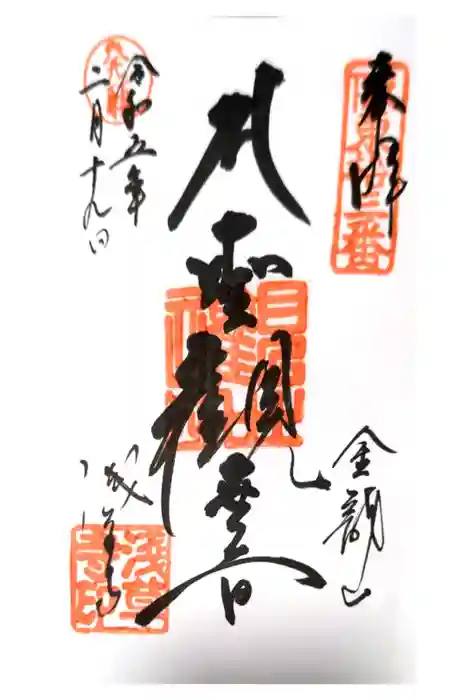 奉拝
坂東第十三番
金龍山
聖観世音
令和五年
二月十九日
浅草寺
浅草寺印